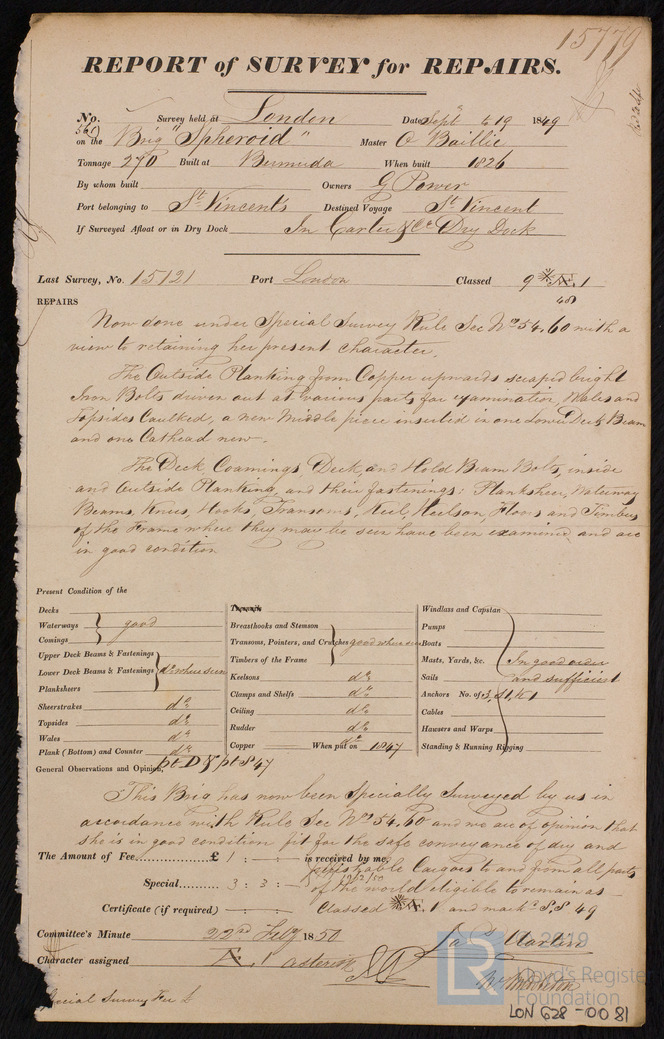 15779
REPORT of SURVEY for REPAIRS.
No. 561 Survey held at London Date Sept 5 to 19 1849
on the Brig "Spheroid" Master O Baillie
Tonnage 270 Built at Bermuda When built 1826
By whom built Owners G Power
Port belonging to St Vincents Destined Voyage St Vincent
If Surveyed Afloat or in Dry Dock In Carter & Co Dry Dock
Last Survey, No. 15121 Port London Classed 9 Æ 1
48
REPAIRS
Now done under Special Survey Rule Sec Nos 54.60 with a
view to retaining her present character.
The Outside Planking from Copper upwards scraped bright
Iron Bolts driven out at various parts for examination, Wales and
Topsides Caulked, a new Middle piece inserted in one Lower Deck Beam
and one Cathead new.
The Deck, Coamings, Deck, and Hold Beam Bolts, inside
and Outside Planking, and their fastenings; Planksheer, Waterway
Beams, Knees, Hooks, Transoms, Keel, Keelson, Floors and Timbers
of the Frame where they may be seen have been examined and are
in good condition
Present Condition of the
Decks
Waterways good
Comings
Upper Deck Beams & Fastenings
Lower Deck Beams & Fastenings do where seen
Planksheers
Sheerstrakes do
Topsides do
Wales do
Plank (Bottom) and Counter do
Breasthooks and Stemson
Transoms, Pointers, and Crutches good where seen
Timbers of the Frame
Keelsons do
Clamps and Shelfs do
Ceiling do
Rudder do
Copper do When put on 1847
Windlass and Capstan
Pumps
Boats
Masts, Yards, &c. In good order
Sails and sufficient
Anchors No. of 3, S1, K1
Cables
Hawsers and Warps
Standing & Running Rigging
General Observations and Opinion, pt D & pt S 47
This Brig has now been Specially Surveyed by us in
accordance with Rule Sec Nos 54.60 and we are of opinion that
she is in good condition fit for the safe conveyance of dry and
The Amount of Fee £ 1 : - : - is received by me,
perishable Cargoes to and from all parts
Special 3 : 3 : -
of the world eligible to remain as
Certificate (if required) - : - :
Classed Æ 1 and marked S.S 49
Committee's Minute 22nd Feby 1850
Jas Martin
Character assigned Æ 1 asterisk
Special Survey Fee £
© 2019
LR
Lloyd's Register
Foundation
LON 628-0081